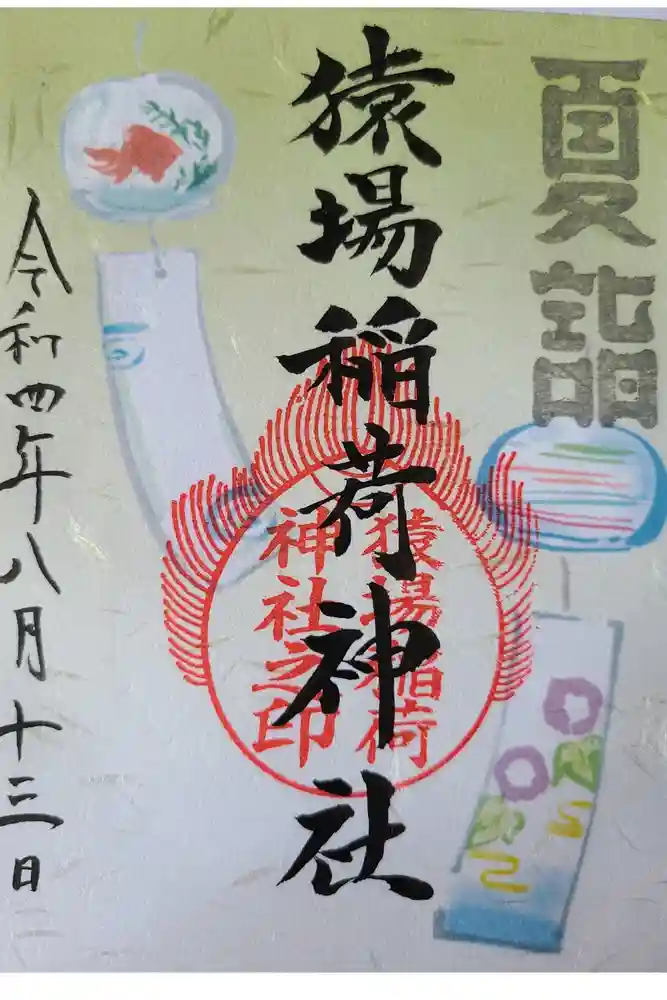 夏詣
猿場稲荷神社
猿場稲荷
神社之印
令和四年八月十三日